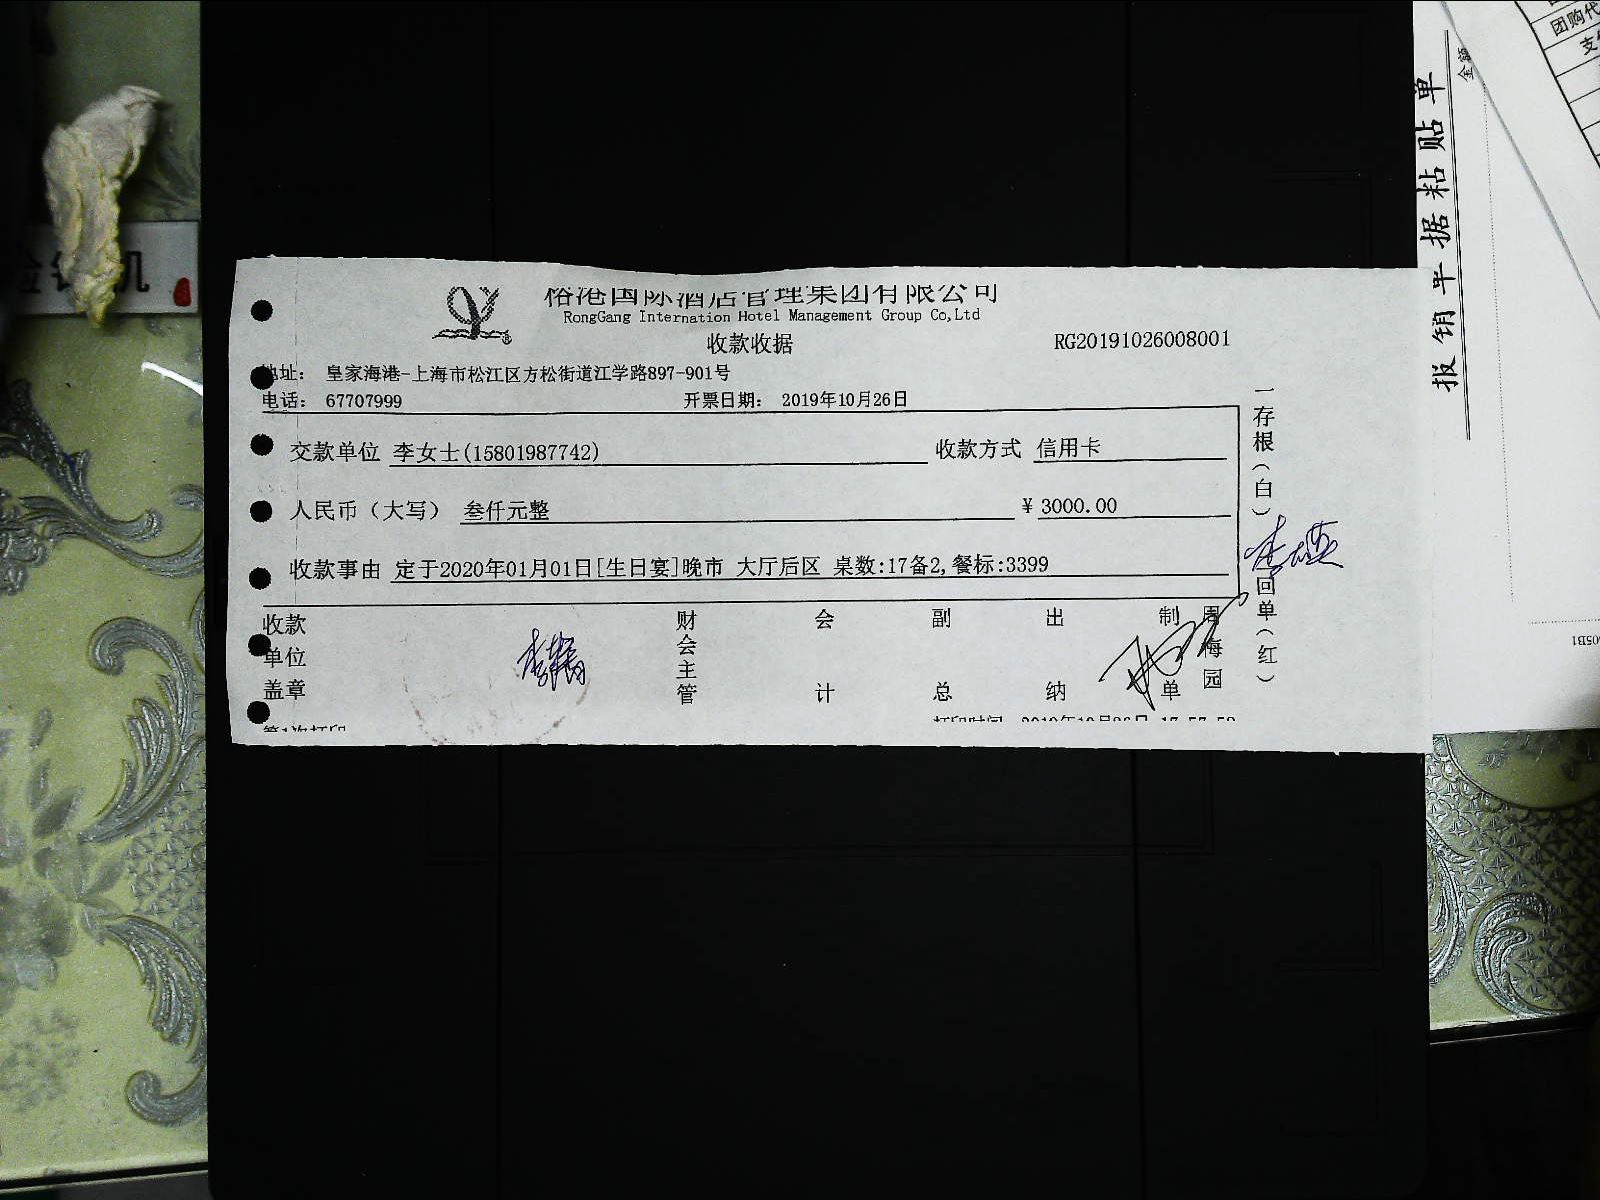 裕港国际酒店管理集团有限公司
RongGang Internation Hotel Management Group Co,Ltd
收款收据
RG20191026008001
地址： 皇家海港-上海市松江区方松街道江学路897-901号
电话： 67707999
开票日期： 2019年10月26日
交款单位 李女士(15801987742)
收款方式 信用卡
人民币（大写） 叁仟元整
¥ 3000.00
收款事由 定于2020年01月01日[生日宴]晚市 大厅后区 桌数:17备2,餐标:3399
收款单位盖章
财会主管
会计
副总
出纳
制单
周梅园
一存根(白)
二回单(红)
第1次打印
打印时间 2019年10月26日 17:57:52
报销单据粘贴单
金额
团购代
支